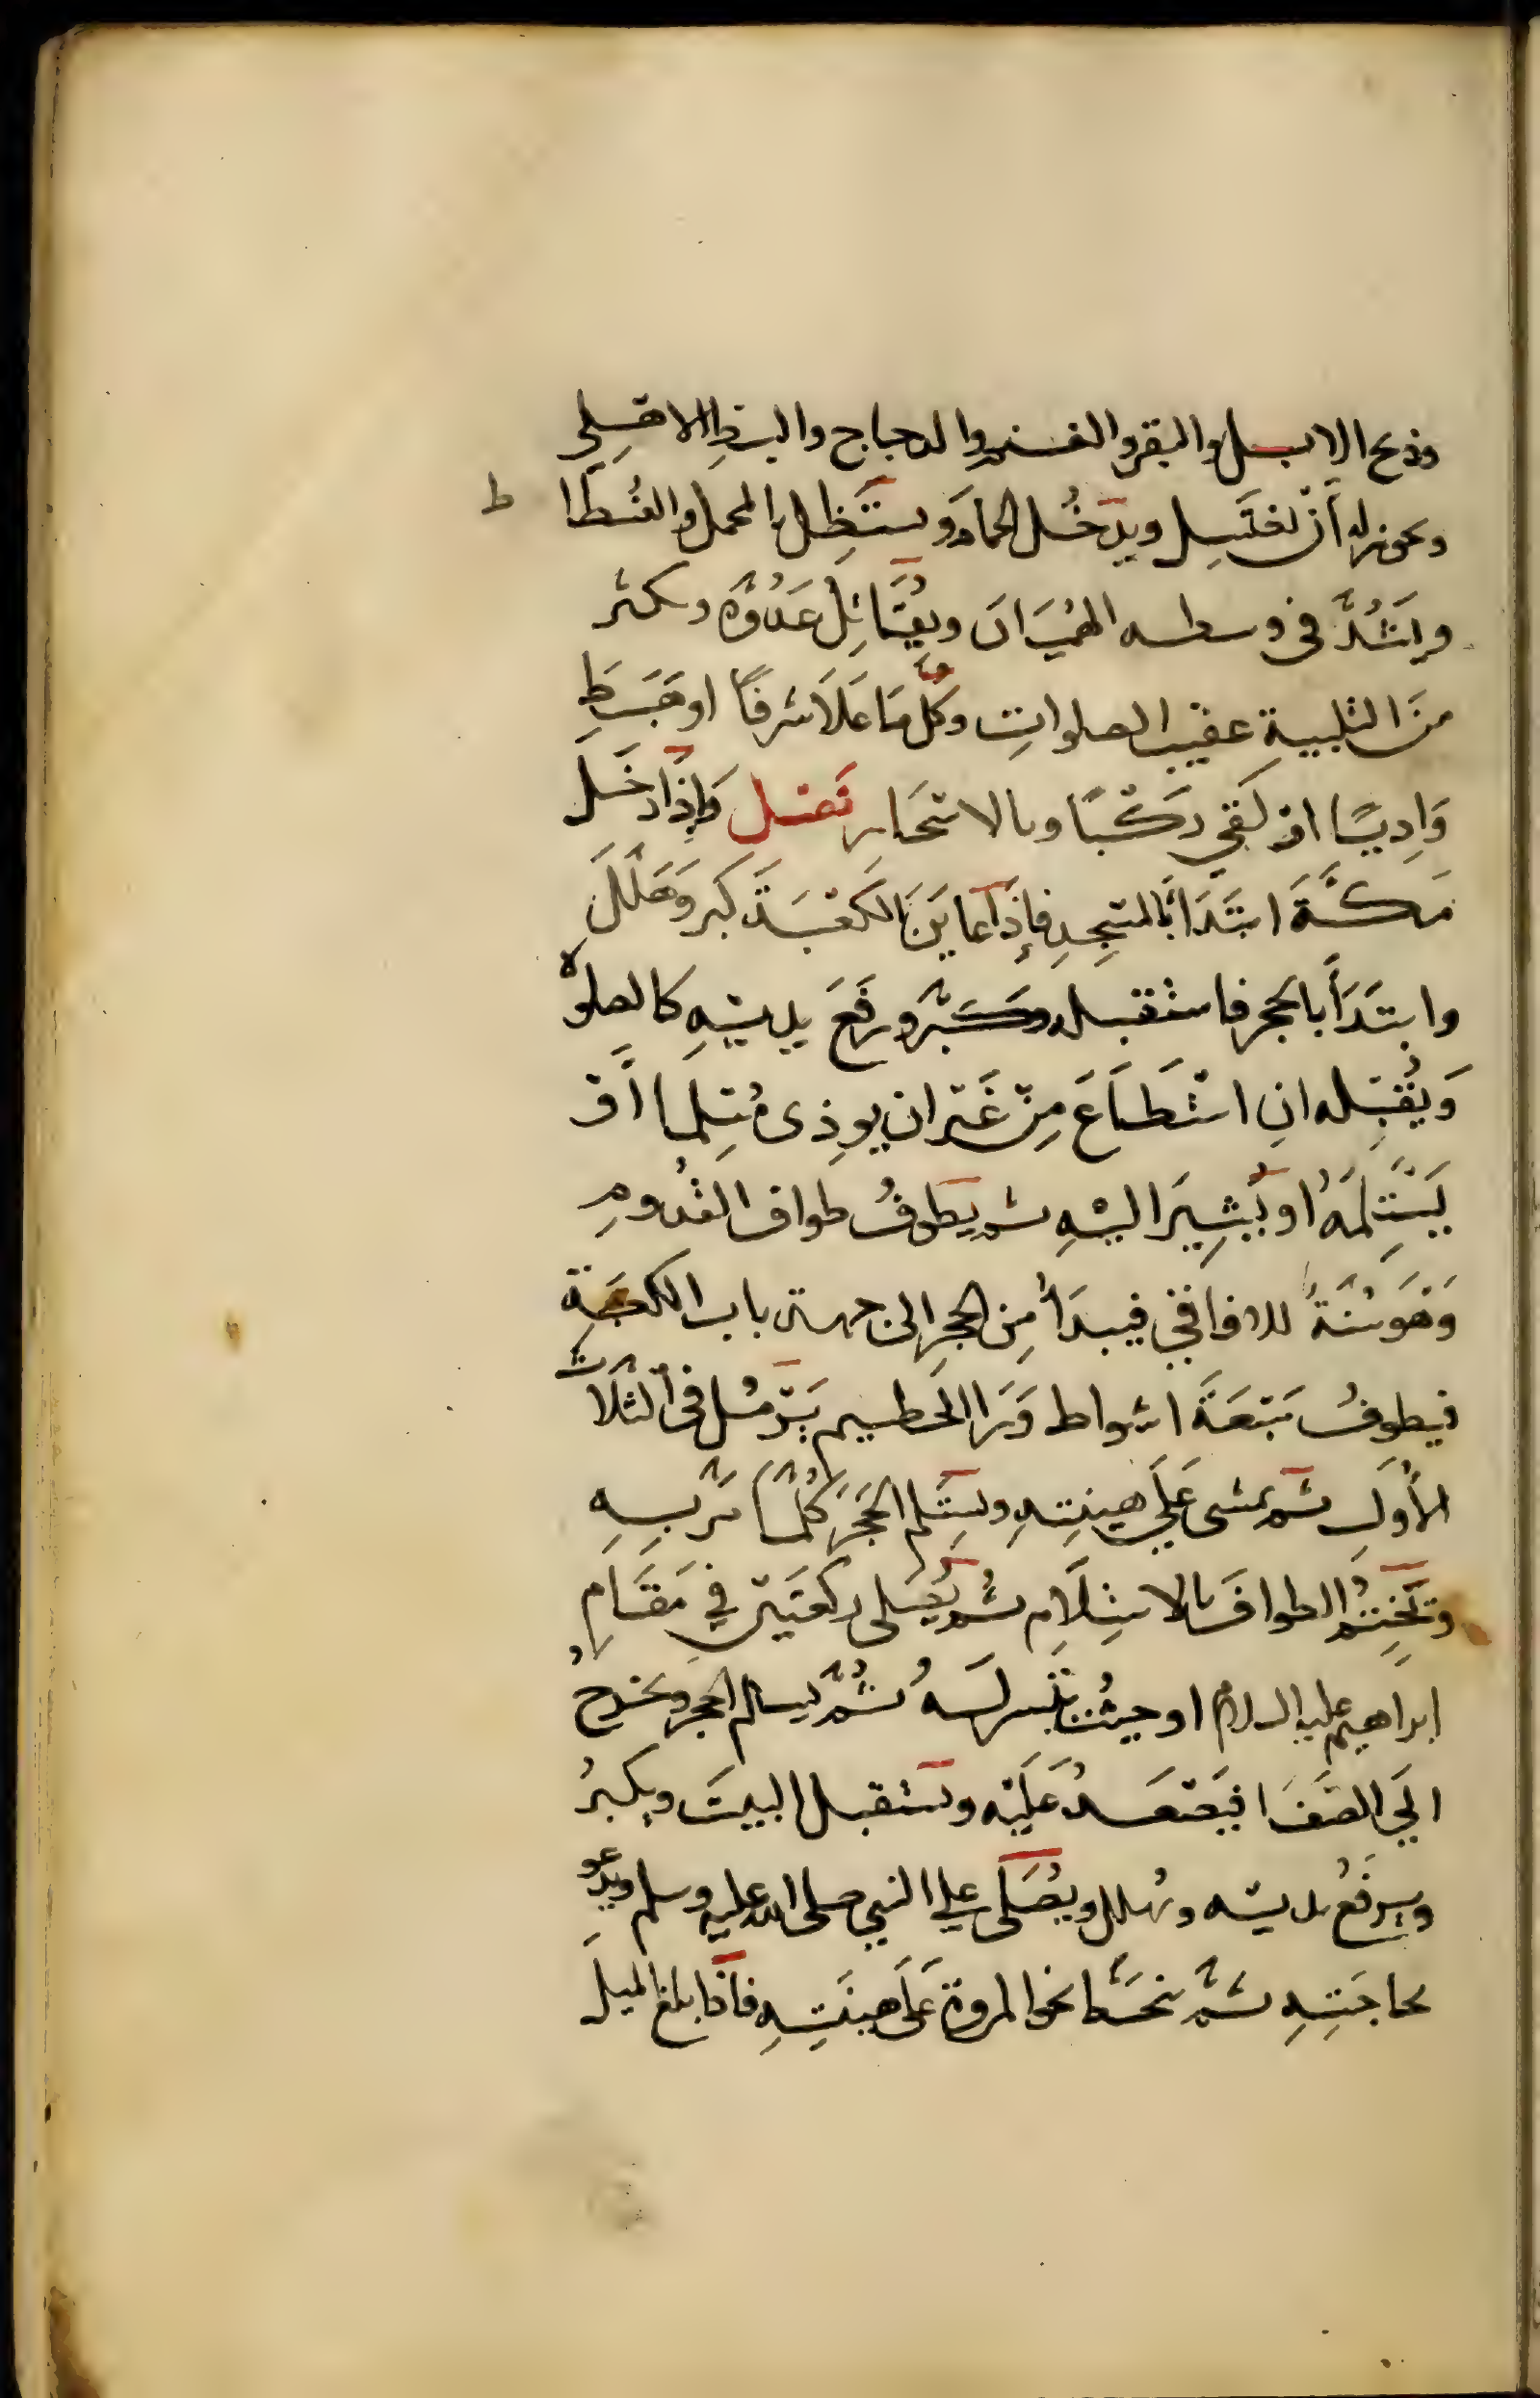 وذبح الإبل والبقر والغنم والدجاج والبط الاهلي
ويجوز له أن يغتسل ويدخل الحمام ويستظل بالمحمل والفسطا ط
ويشد في وسطه الهميان ويقاتل عدوه ويكثر
من التلبية عقيب الصلوات وكلما علا شرفا او هبط
واديا او لقي ركبا وبالاسحار فصل وإذا دخل
مكة ابتدأ بالمسجد فإذا عاين الكعبة كبر وهلل
وابتدأ بالحجر فاستقبله وكبر ورفع يديه كالصلوة
ويقبله ان استطاع من غير ان يوذي مسلما أو
يستلمه او يشير اليه ثم يطوف طواف القدوم
وهو سنة للافاقي فيبدأ من الحجر الى جهة باب الكعبة
فيطوف سبعة اشواط ورا الحطيم يرمل في الثلاث
الأول ثم يمشي على هينته ويستلم الحجر كلما مر به
ويختم الطواف بالاستلام ثم يصلى ركعتين في مقام
ابراهيم عليه السلام او حيث تيسر له ثم يستلم الحجر ويخرج
الي الصفا فيصعد عليه ويستقبل البيت ويكبر
ويرفع يديه ويهلل ويصلى على النبي صلى الله عليه وسلم ويدعو
بحاجته ثم ينحط نحو المروة على هينته فاذا بلغ الميل